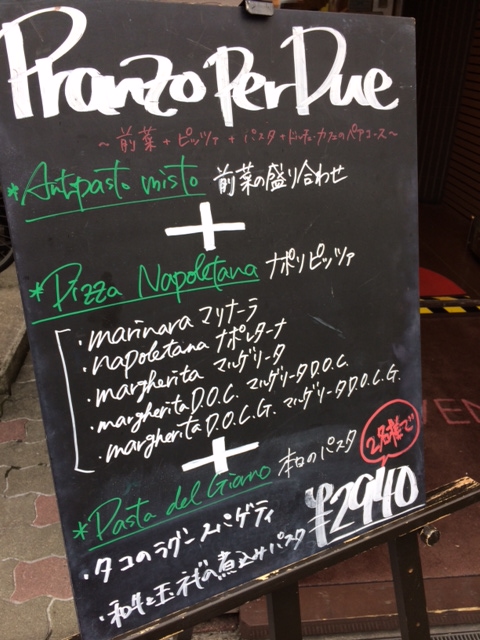 Pranzo Per Due
～前菜+ピッツァ+パスタ+ドルチェ・カフェのペアコース～
*Antipasto misto 前菜の盛り合わせ
+
*Pizza Napoletana ナポリピッツァ
・marinara マリナーラ
・napoletana ナポレターナ
・margherita マルゲリータ
・margherita D.O.C. マルゲリータD.O.C.
・margherita D.O.C.G. マルゲリータD.O.C.G.
+
*Pasta del Giorno 本日のパスタ
2名様で
¥2940
・タコのラグースパゲティ
・和牛と玉ネギの煮込みパスタ